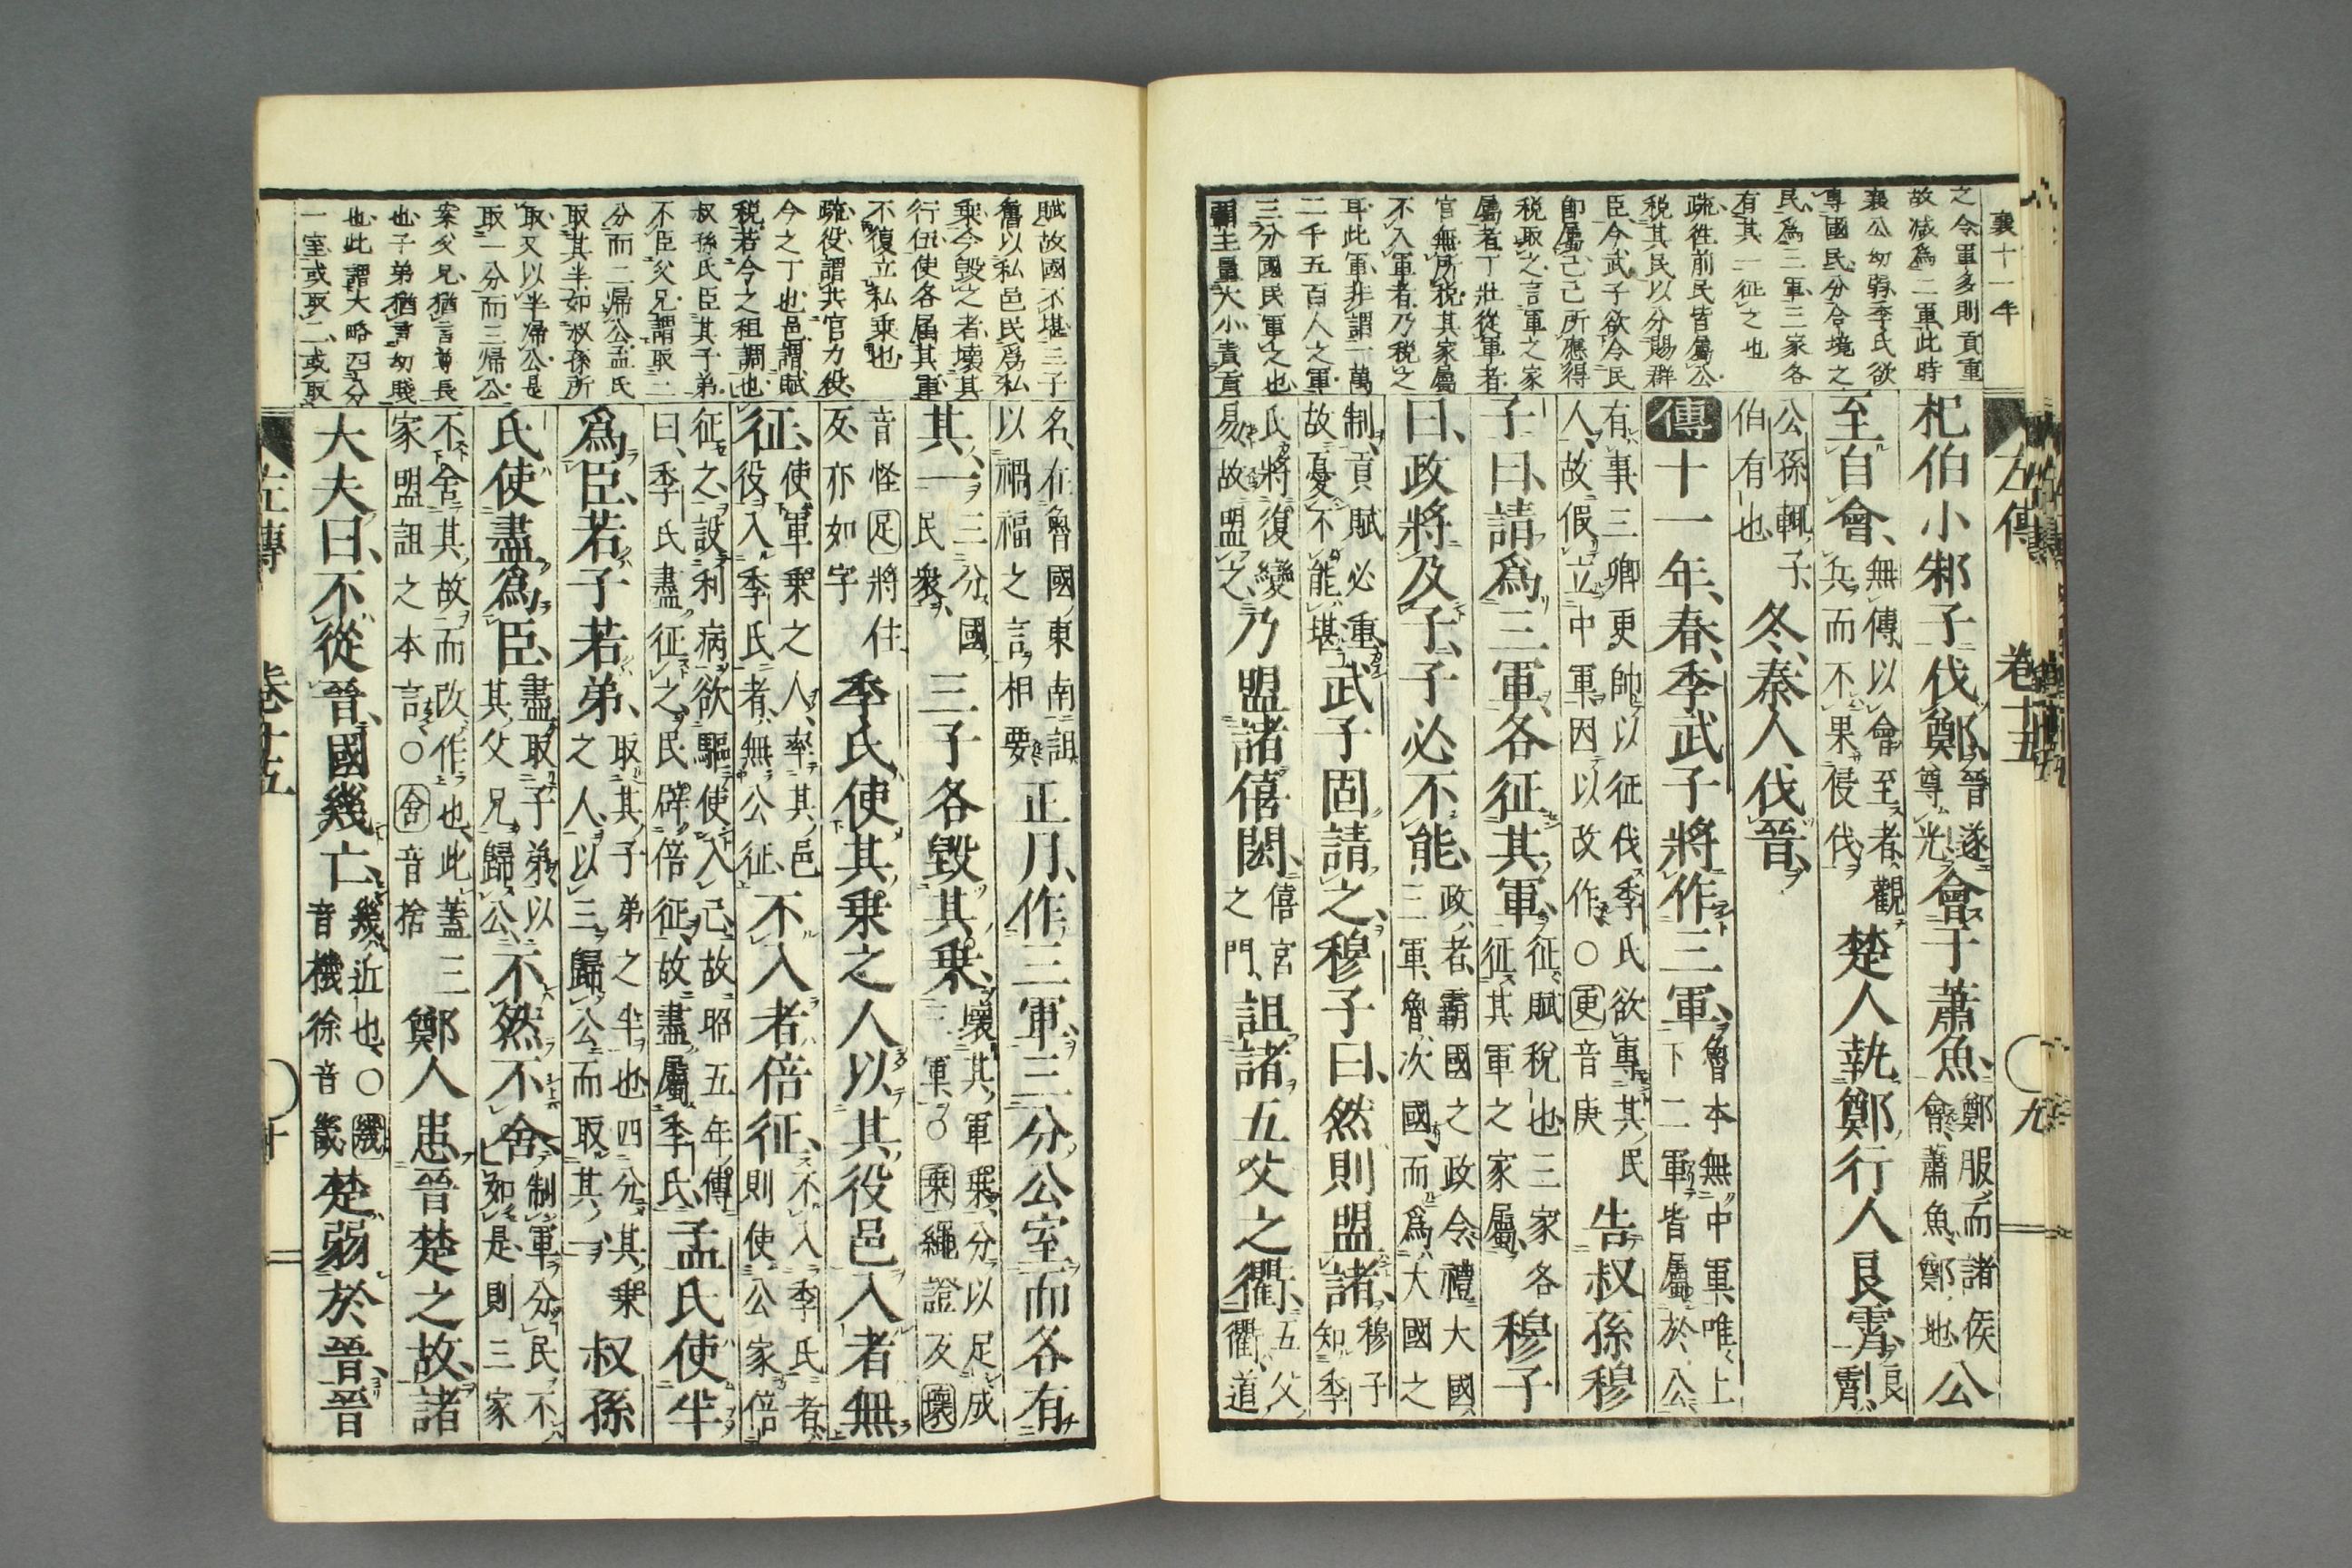 襄十一年
之令軍多則貢重
故減爲二軍此時
襄公幼弱季氏欲
專國民分合境之
民爲三軍三家各
有其一征之也
疏徃前民皆屬公
税其民以分賜群
臣今武子欲令民
即屬己己所應得
税取之言軍之家
屬者丁壯從軍者
官無所税其家屬
不入軍者乃税之
耳此軍非謂一萬
二千五百人之軍
三分國民軍之也
霸主量大小責貢
左傳 卷十五 九
杞伯小邾子伐鄭、晉遂尊光會于蕭魚、鄭服而諸侯會蕭魚鄭地公
至自會、無傳以會至者觀兵而不果侵伐楚人執鄭行人良霄、良霄
公孫輒子伯有也冬、秦人伐晉、
傳十一年、春、季武子將作三軍、魯本無中軍唯上下二軍皆屬於公
有事三卿更帥以征伐季氏欲專其民人故假立中軍因以改作○更音庚告叔孫穆
子曰、請爲三軍、各征其軍、征賦税也三家各征其軍之家屬穆子
曰、政將及子、子必不能、政者霸國之政令禮大國三軍魯次國而爲大國之
制貢賦必重故憂不能堪武子固請之、穆子曰、然則盟諸、穆子知季
氏將復變易故盟之乃盟諸僖閎、僖宮之門詛諸五父之衢、五父衢道
賦故國不堪三子
舊以私邑民爲私
乘今毀之者壞其
行伍使各屬其軍
不復立私乘也
疏役謂共官力役
今之丁也邑謂賦
税若今之租調也
叔孫氏臣其子弟
不臣父兄謂取二
分而二帰公孟氏
取其半如叔孫所
取又以半帰公是
取一分而三帰公
案父兄猶言尊長
也子弟猶言幼賤
也此謂大略四分
一室或取二或取
名在魯國東南詛以禍福之言相要正月、作三軍、三分公室而各有
其一、三分國民衆三子各毀其乘、壞其軍乘分以足成三軍○乘繩證反壞
音怪足將住反亦如字季氏使其乘之人以其役邑入者無
征、使軍乘之人率其邑役入季氏者無公征不入者倍征、不入季氏者則使公家倍
征之設利病欲驅使入己故昭五年傳曰季氏盡征之民辟倍征故盡屬季氏孟氏使半
爲臣、若子若弟、取其子弟之半也四分其乘之人以三歸公而取其一叔孫
氏使盡爲臣、盡取子弟以其父兄歸公不然不舍、制軍分民不如是則三家
不舍其故而改作也此蓋三家盟詛之本言○舍音捨鄭人患晉楚之故、諸
大夫曰、不從晉、國幾亡、幾近也○幾音機徐音畿楚弱於晉、晉
左傳 卷十五 十